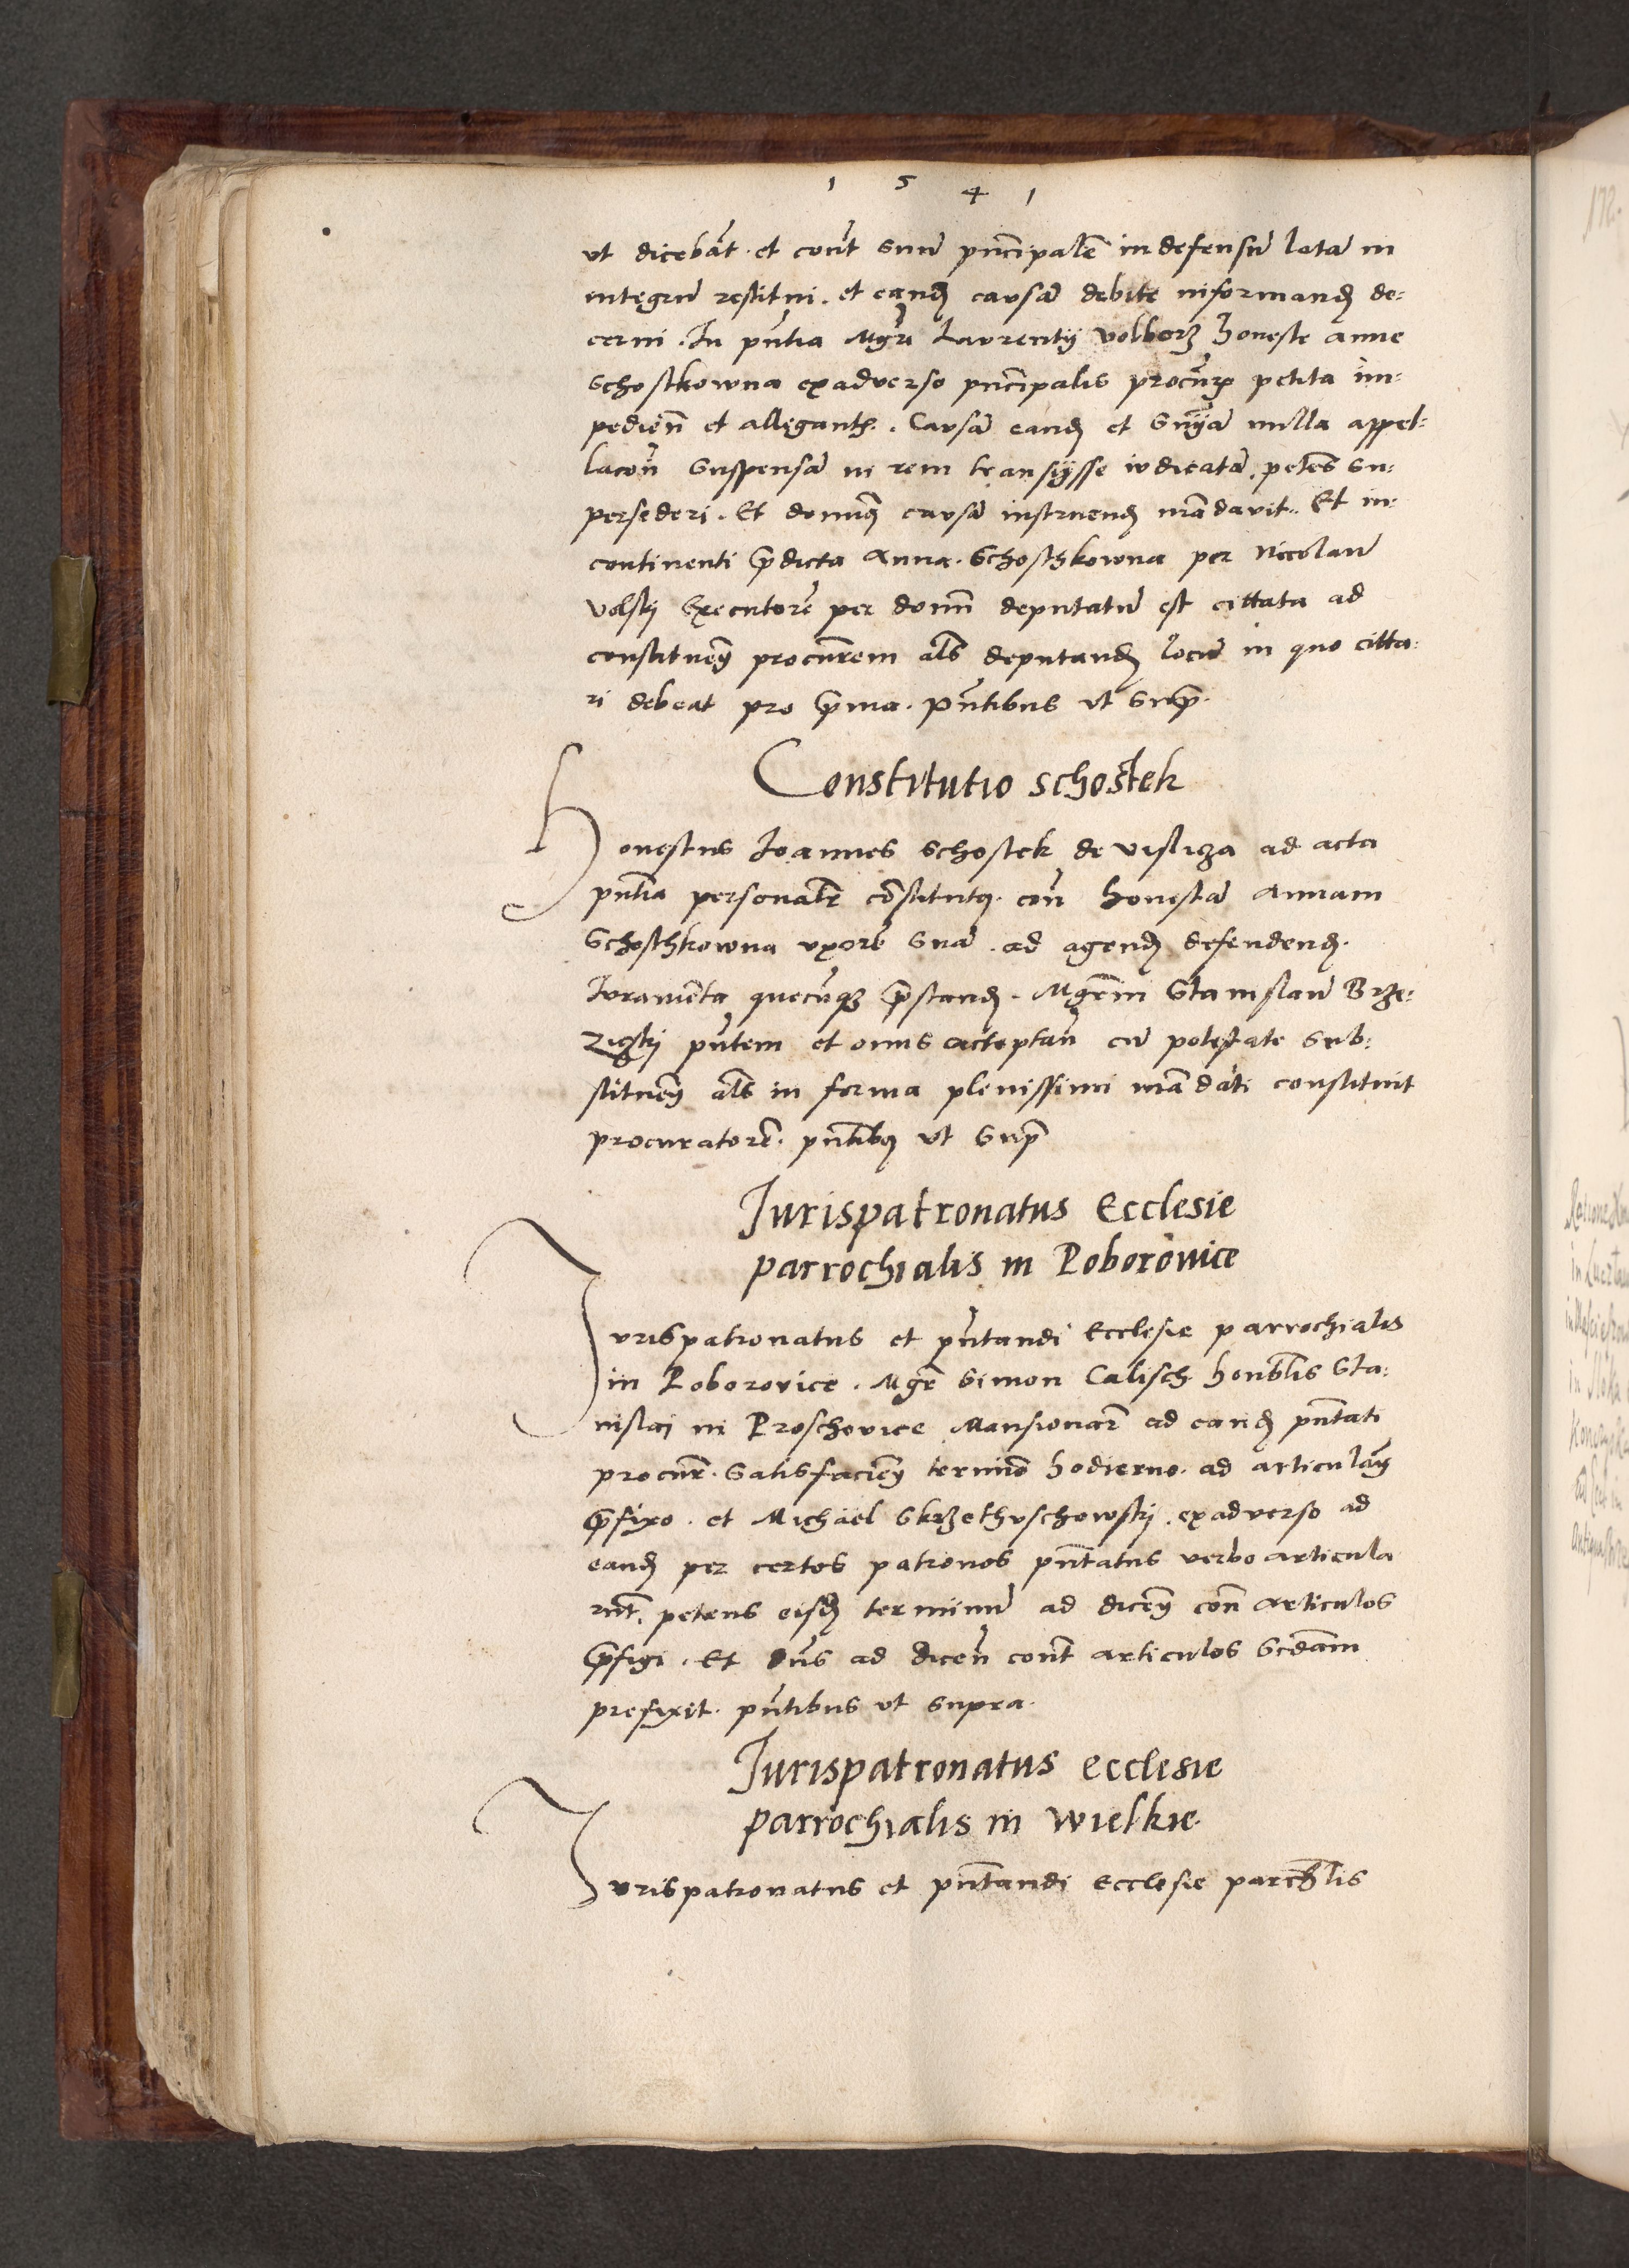 1 5 4 1
ut dicebat̃ · et coñt suũ pñcipalẽ indefensũ latã in
integrũ restitui · et eandẽ causã debite informandã de:
cerni · In pñtia Mgri Laurentij Volborz honeste anne
Schostkowna exadverso pñcipalis procur̃ petita im:
pedieñ et allegantis · Causã eandẽ et sñiã nulla appel:
lacoñ suspensã in rem transijsse iudicatã, petẽs su:
persederi · Et domiñq causã instruendã mãdavit · Et in:
continenti p̃dicta Anna · Schosthkowna per Nicolaũ
Volsky Executorẽ per domñ deputatũ est cittata ad
constitueñ procur̃em als̃ deputandũ locũ in quo citta:
ri debeat pro p̃ma · Pñtibus ut sup̃ ·
Constitutio schostek
Honestus Ioannes Schostek de visliza ad acta
pñtia personalr̃ cõstitutq · coñ honestã Annam
Schosthkowna uxorẽ suã · ad agendũ defendendũ ·
Iuramẽta quecũq p̃standũ · Mgr̃m Stanislaũ Brze:
zicskij pñtem et onus acceptañ cũ potestate sub:
stitueñ als̃ in forma plenissimi mãdati constituit
procuratorẽ · pñtibq ut sup̃
Iurispatronatus Ecclesie
parrochialis in Poborovice
Iurispatronatus et pñtandi Ecclesie parrochialis
in Poborovice · Mgr̃ Simon Calisch honblis Sta:
nislai in Proschovice Mansionar̃ ad eandẽ pñtati
procur̃ · satisfacieñ termiño hodierno · ad articulañ
p̃fixo · et Michael Skrzethuschowskij · exadverso ad
eandẽ per certos patronos pñtatus verbo articula
rũt, petens eisdẽ termiinũ ad diceñ coñ articulos
p̃figi · Et Dñs ad diceñ coñt articulos Scdam
prefixit · pñtibus ut supra ·
Iurispatronatus ecclesie
parrochialis in Wielkie ·
Iurispatronatus et pñtandi Ecclesie parchlis
172